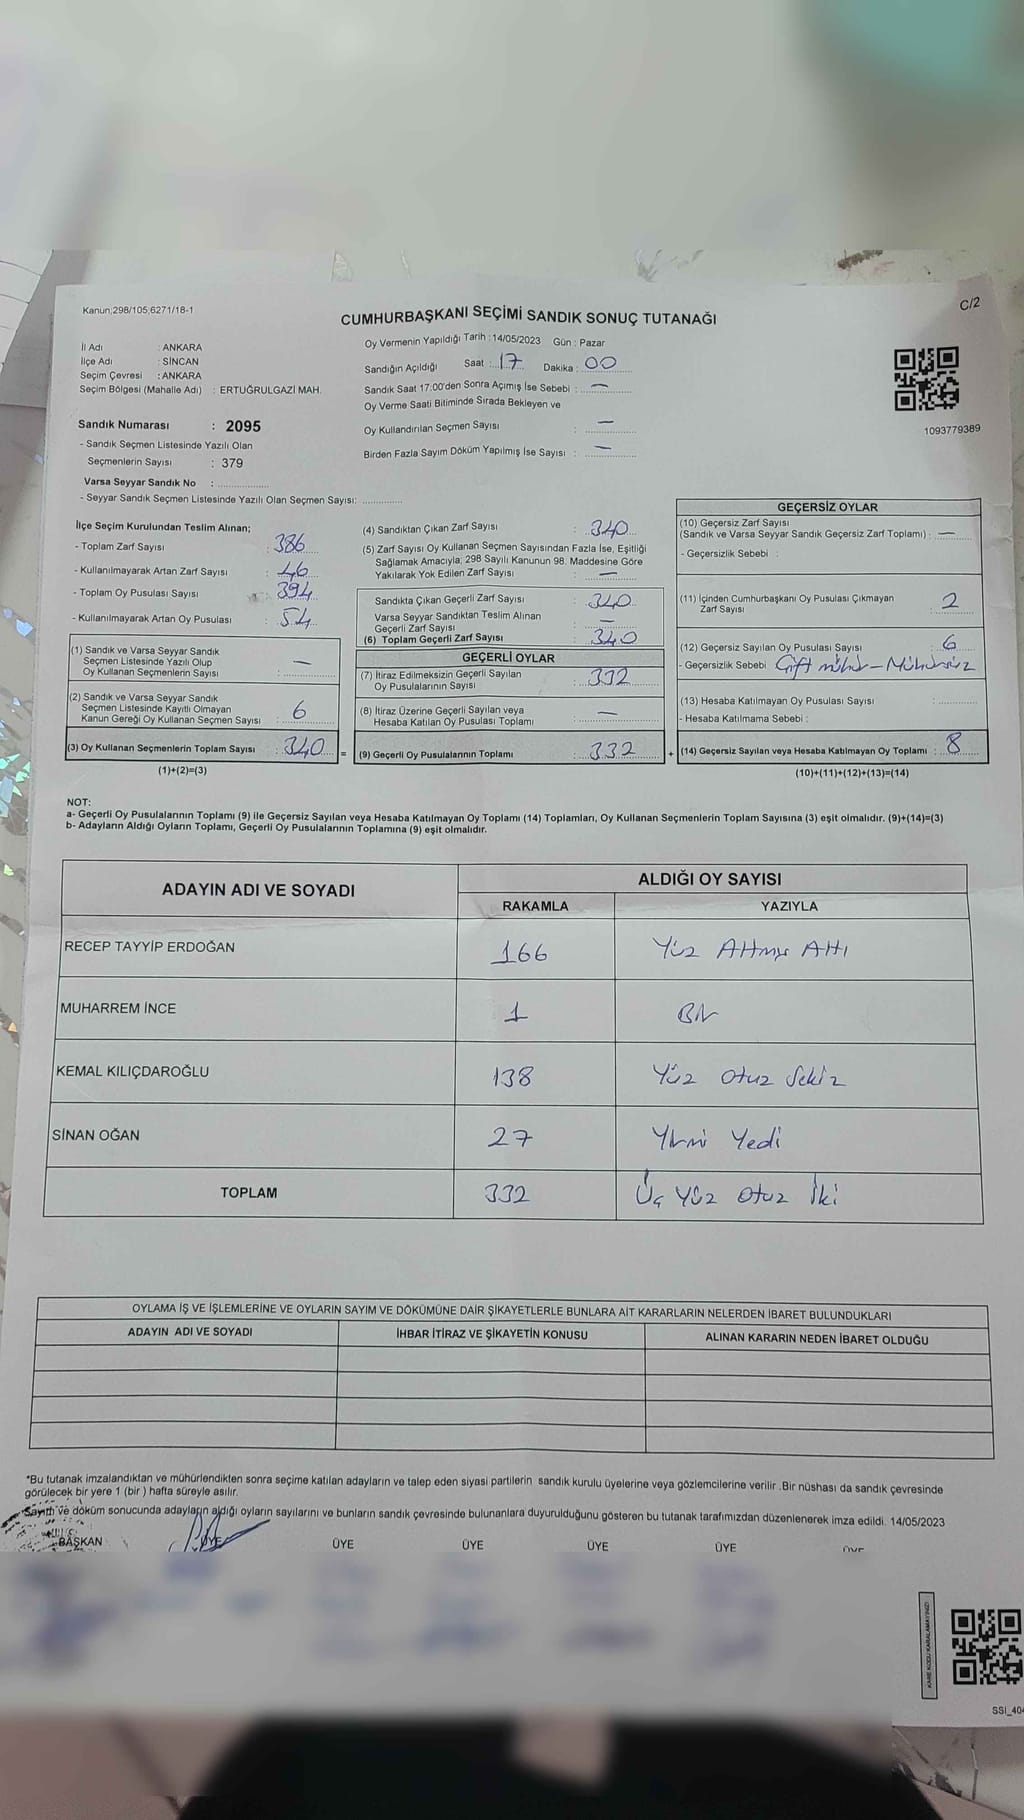 Kanun;298/105;6271/18-1
C/2
CUMHURBAŞKANI SEÇİMİ SANDIK SONUÇ TUTANAĞI
İl Adı : ANKARA
İlçe Adı : SİNCAN
Seçim Çevresi : ANKARA
Seçim Bölgesi (Mahalle Adı) : ERTUĞRULGAZİ MAH.
Oy Vermenin Yapıldığı Tarih : 14/05/2023 Gün : Pazar
Sandığın Açıldığı Saat : 17 Dakika : 00
Sandık Saat 17:00'den Sonra Açımış İse Sebebi : —
Oy Verme Saati Bitiminde Sırada Bekleyen ve
Oy Kullandırılan Seçmen Sayısı : —
Birden Fazla Sayım Döküm Yapılmış İse Sayısı : —
1093779389
Sandık Numarası : 2095
- Sandık Seçmen Listesinde Yazılı Olan
Seçmenlerin Sayısı : 379
Varsa Seyyar Sandık No :
- Seyyar Sandık Seçmen Listesinde Yazılı Olan Seçmen Sayısı:
İlçe Seçim Kurulundan Teslim Alınan;
- Toplam Zarf Sayısı : 386
- Kullanılmayarak Artan Zarf Sayısı : 46
- Toplam Oy Pusulası Sayısı : 394
- Kullanılmayarak Artan Oy Pusulası : 54
(1) Sandık ve Varsa Seyyar Sandık
Seçmen Listesinde Yazılı Olup
Oy Kullanan Seçmenlerin Sayısı : —
(2) Sandık ve Varsa Seyyar Sandık
Seçmen Listesinde Kayıtlı Olmayan
Kanun Gereği Oy Kullanan Seçmen Sayısı : 6
(3) Oy Kullanan Seçmenlerin Toplam Sayısı : 340 =
(1)+(2)=(3)
(4) Sandıktan Çıkan Zarf Sayısı : 340
(5) Zarf Sayısı Oy Kullanan Seçmen Sayısından Fazla İse, Eşitliği
Sağlamak Amacıyla; 298 Sayılı Kanunun 98. Maddesine Göre
Yakılarak Yok Edilen Zarf Sayısı : —
Sandıkta Çıkan Geçerli Zarf Sayısı : 340
Varsa Seyyar Sandıktan Teslim Alınan
Geçerli Zarf Sayısı : —
(6) Toplam Geçerli Zarf Sayısı : 340
GEÇERLİ OYLAR
(7) İtiraz Edilmeksizin Geçerli Sayılan
Oy Pusulalarının Sayısı : 332
(8) İtiraz Üzerine Geçerli Sayılan veya
Hesaba Katılan Oy Pusulası Toplamı : —
(9) Geçerli Oy Pusulalarının Toplamı : 332 +
GEÇERSİZ OYLAR
(10) Geçersiz Zarf Sayısı
(Sandık ve Varsa Seyyar Sandık Geçersiz Zarf Toplamı) : —
- Geçersizlik Sebebi :
(11) İçinden Cumhurbaşkanı Oy Pusulası Çıkmayan
Zarf Sayısı : 2
(12) Geçersiz Sayılan Oy Pusulası Sayısı : 6
- Geçersizlik Sebebi Çift mühür – Mühürsüz
(13) Hesaba Katılmayan Oy Pusulası Sayısı :
- Hesaba Katılmama Sebebi :
(14) Geçersiz Sayılan veya Hesaba Katılmayan Oy Toplamı : 8
(10)+(11)+(12)+(13)=(14)
NOT:
a- Geçerli Oy Pusulalarının Toplamı (9) ile Geçersiz Sayılan veya Hesaba Katılmayan Oy Toplamı (14) Toplamları, Oy Kullanan Seçmenlerin Toplam Sayısına (3) eşit olmalıdır. (9)+(14)=(3)
b- Adayların Aldığı Oyların Toplamı, Geçerli Oy Pusulalarının Toplamına (9) eşit olmalıdır.
ADAYIN ADI VE SOYADI ALDIĞI OY SAYISI
RAKAMLA YAZIYLA
RECEP TAYYİP ERDOĞAN 166 Yüz Altmış Altı
MUHARREM İNCE 1 Bir
KEMAL KILIÇDAROĞLU 138 Yüz Otuz Sekiz
SİNAN OĞAN 27 Yirmi Yedi
TOPLAM 332 Üç Yüz Otuz İki
OYLAMA İŞ VE İŞLEMLERİNE VE OYLARIN SAYIM VE DÖKÜMÜNE DAİR ŞİKAYETLERLE BUNLARA AİT KARARLARIN NELERDEN İBARET BULUNDUKLARI
ADAYIN ADI VE SOYADI İHBAR İTİRAZ VE ŞİKAYETİN KONUSU ALINAN KARARIN NEDEN İBARET OLDUĞU
*Bu tutanak imzalandıktan ve mühürlendikten sonra seçime katılan adayların ve talep eden siyasi partilerin sandık kurulu üyelerine veya gözlemcilerine verilir .Bir nüshası da sandık çevresinde
görülecek bir yere 1 (bir ) hafta süreyle asılır.
Sayım ve döküm sonucunda adayların aldığı oyların sayılarını ve bunların sandık çevresinde bulunanlara duyurulduğunu gösteren bu tutanak tarafımızdan düzenlenerek imza edildi. 14/05/2023
BAŞKAN ÜYE ÜYE ÜYE ÜYE ÜYE ÜYE
KARE KODU KARALAMAYINIZ!
SSI_404